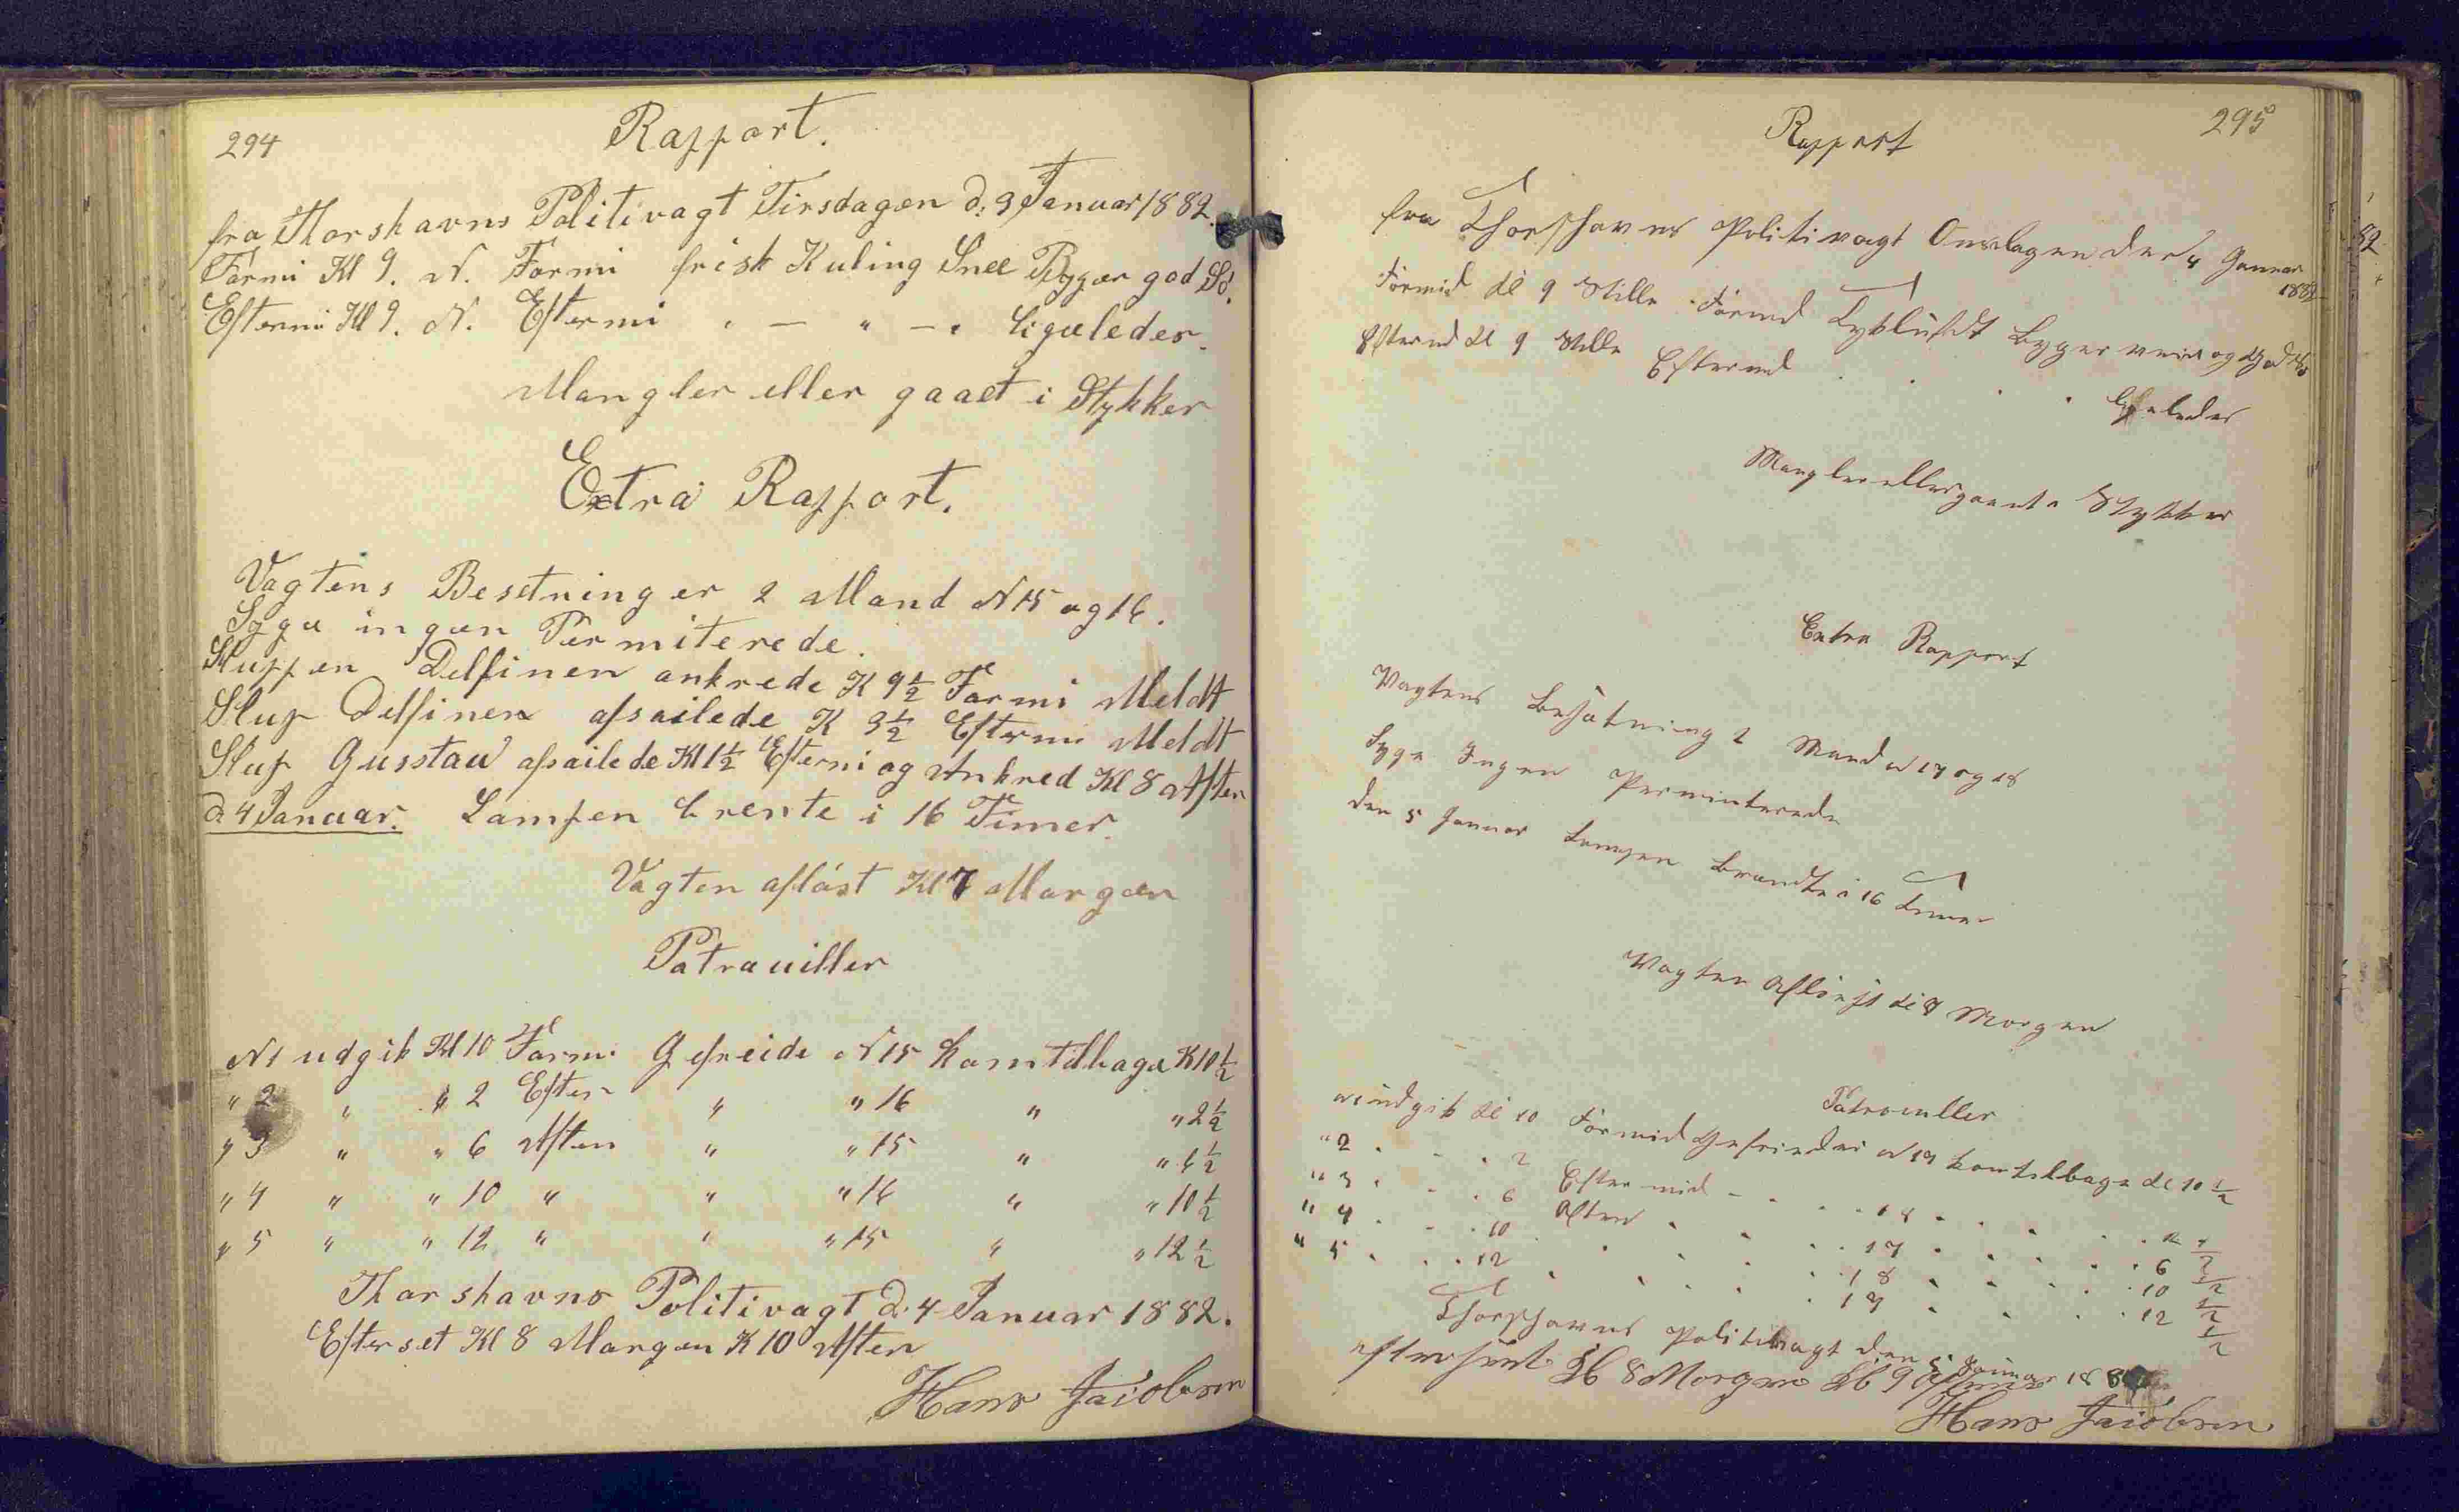 294
Rapport.
fra Thorshavns Politivagt Tirsdagen d: 3 Januar 1882.
Formi Kl 9. N. Formi frisk Kuling Snee Byger god Sö.
Eftermi Kl 9. N. Eftermi " — " — " ligeledes.
Mangler eller gaaet i Stykker
Extra Rapport.
Vagtens Besetning er 2 Mand N 15 og 16.
Syge ingen Permiterede.
Sluppen Delfinen ankrede K 9½ Formi Meldt
Slup Delfinen afsailede K 3½ Eftermi Meldt
Slup Gusstav afsailede Kl 1½ Eftermi og Ankred Kl 8 Aften
d. 4 Januar. Lampen brente i 16 Timer.
Vagten aflöst Kl 7 Morgen
Patrouiller
N1 udgik Kl 10 Formi Gefreide N 15 kom Tilbage K 10½
" 2 " " 2 Efter " " 16 " " 2½
" 3 " " 6 Aften " " 15 " " 6½
" 4 " " 10 " " " 16 " " 10½
" 5 " " 12 " " " 15 " " 12½
Thorshavns Politivagt d. 4 Januar 1882.
Efterset Kl 8 Morgen K 10 Aften
Hans Jacobsen
295
Rapport
fra Thorshavns Politivagt Onsdagen den 4 Januar
1882
Formid Kl 9 Stille Formd Tykluft Byger veir og God Sö
Eftermd Kl 9 Stille Eftermd . . . . ligeledes
Mangler eller gaaet i Stykker
Extra Rapport
Vagtens Besætning 2 Mand N 17 og 18
Syge Ingen Permiterede
den 5 Januar Lampen Brændte i 16 Timer
Vagten Aflöst Kl 7 Morgen
Patrouiller
N1 udgik Kl 10 Formid Gefreider N 17 kom tilbage Kl 10½
" 2 . . . 2 Eftermid - . . . 18 . . . . . 2½
" 3 . . . 6 Aften . . . . 17 . . . . . 6½
" 4 . . . 10 . . . . . 18 . . . . . 10½
" 5 . . . 12 . . . . . 17 . . . . . 12½
Thorshavns Politivagt den 5 Januar 188
efterseet Kl 8 Morgen Kl 9 Aften
Hans Jacobsen